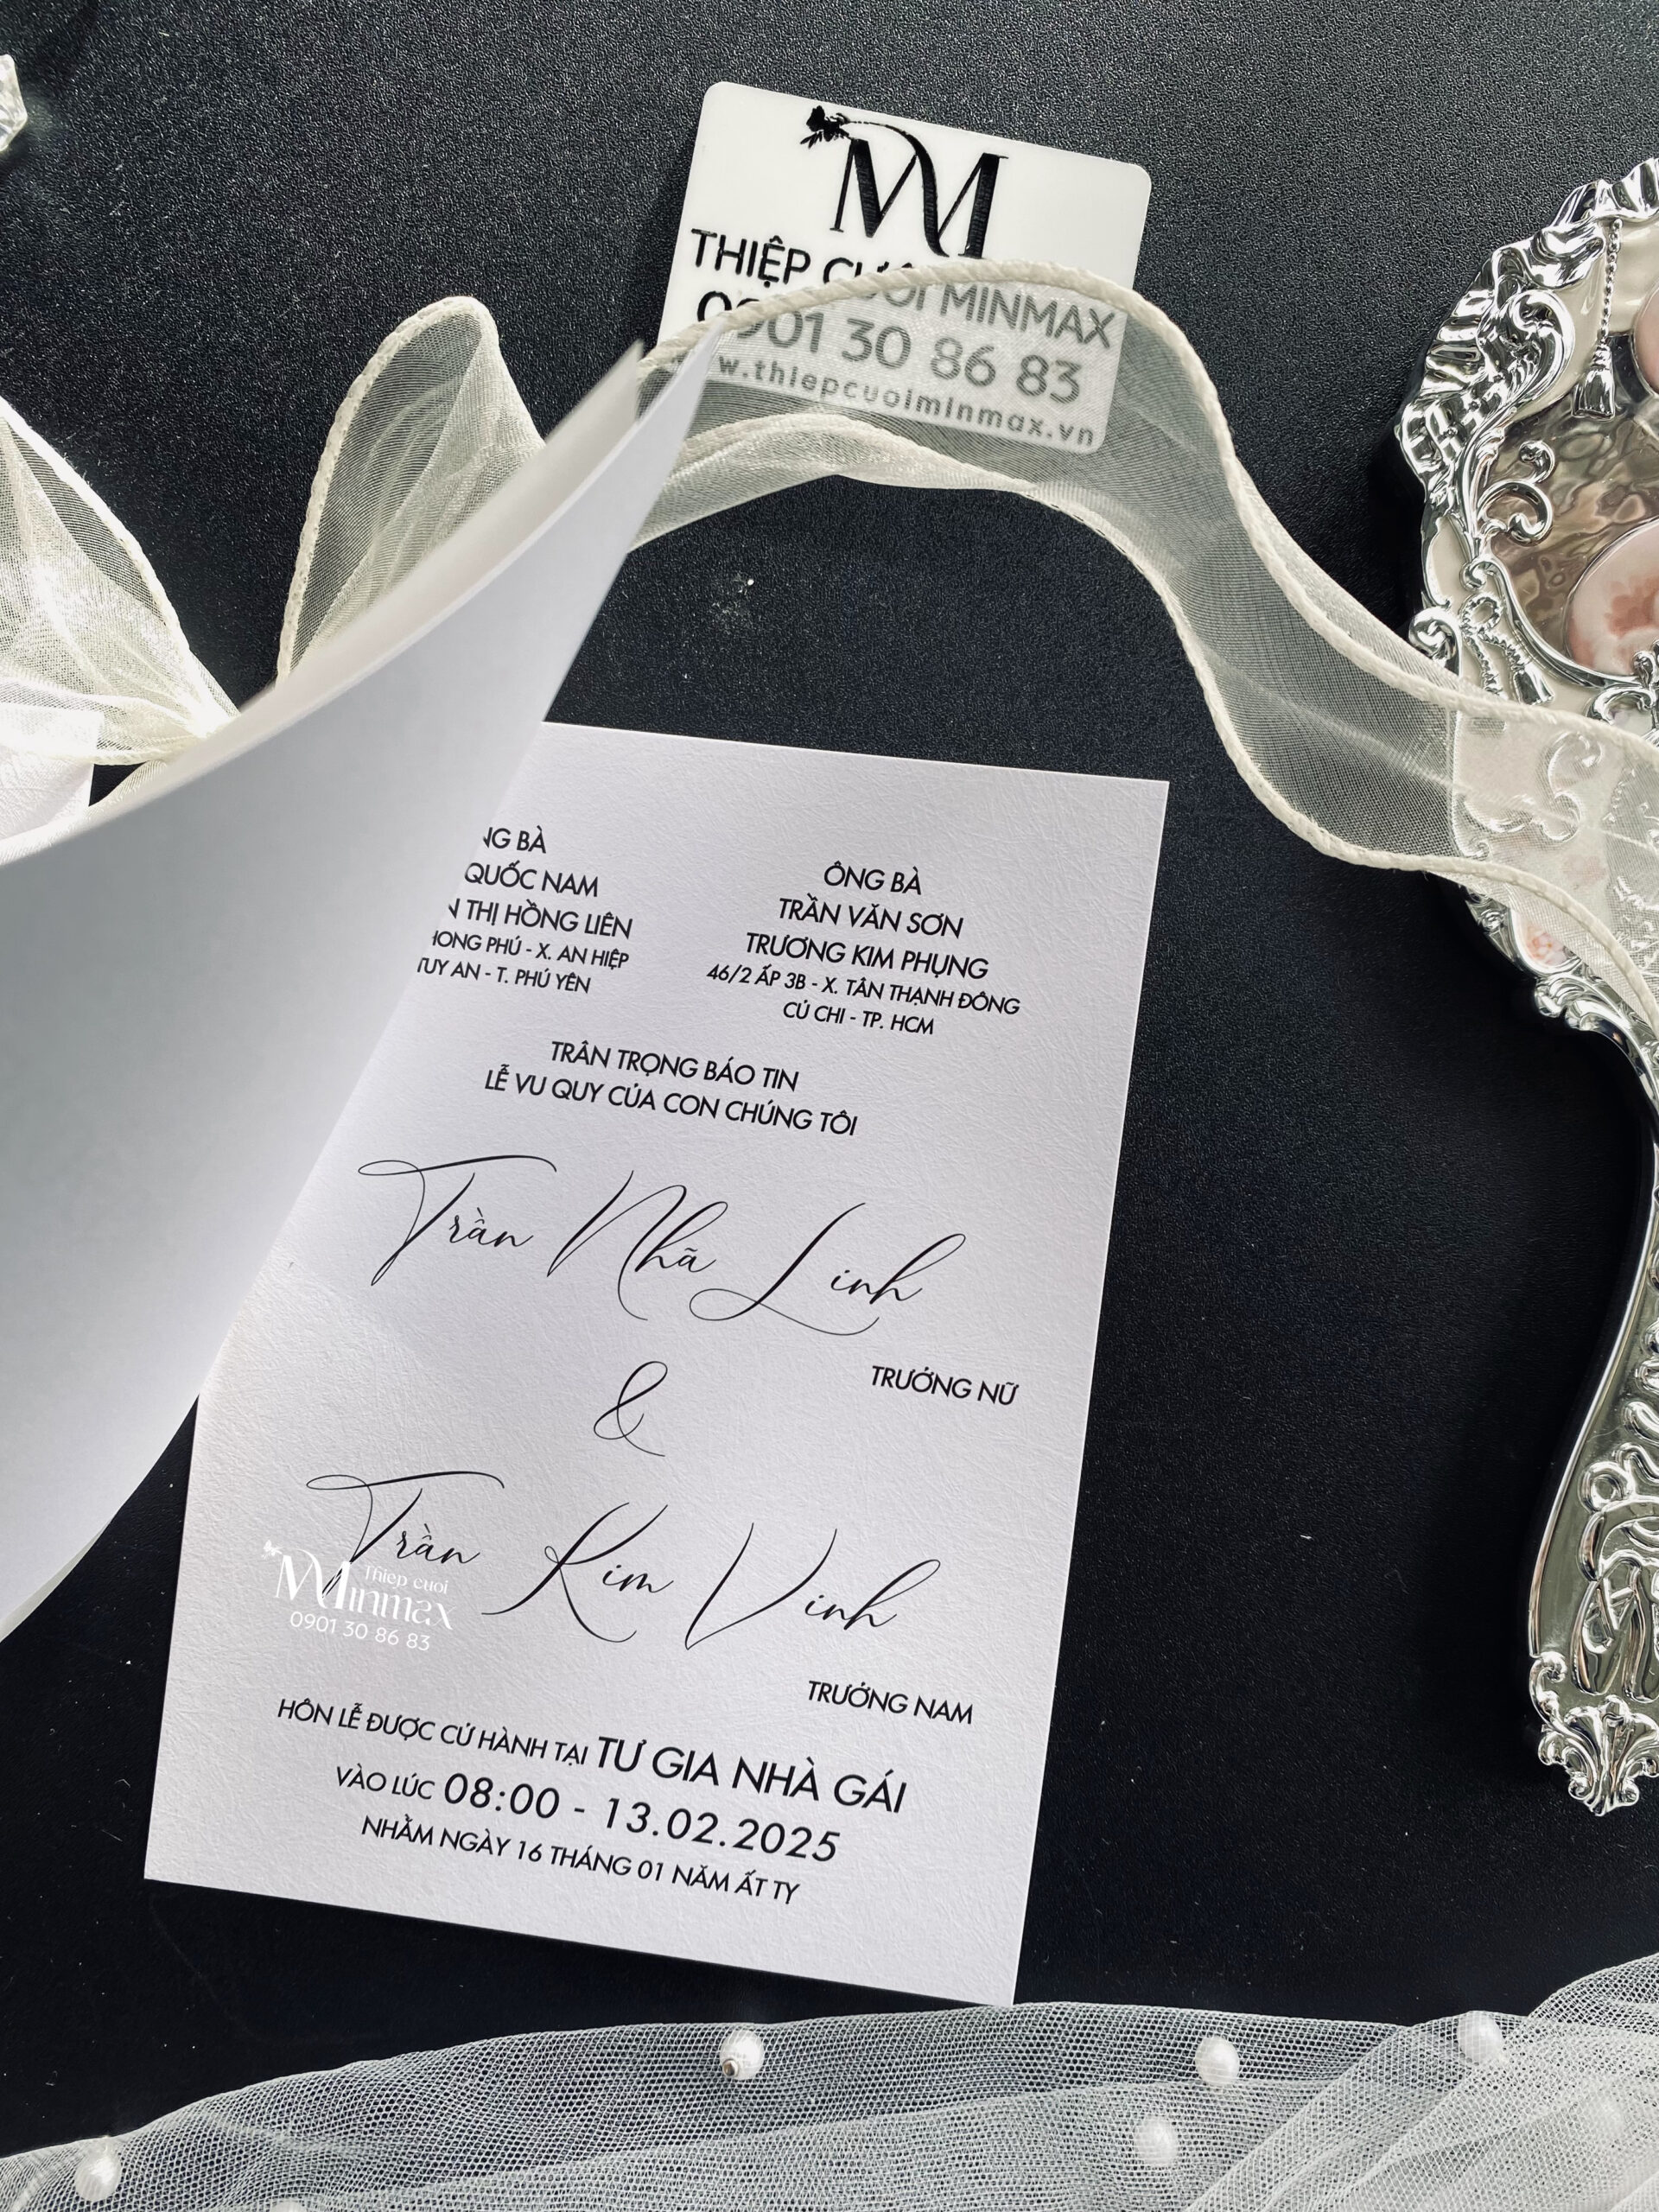 THIỆP CƯỚI MINMAX
0901 30 86 83
w.thiepcuoiminmax.vn
BÀ
QUỐC NAM
THỊ HỒNG LIÊN
PHÚ - X. AN HIỆP
TUY AN - T. PHÚ YÊN
ÔNG BÀ
TRẦN VĂN SƠN
TRƯƠNG KIM PHỤNG
46/2 ẤP 3B - X. TÂN THẠNH ĐÔNG
CỦ CHI - TP. HCM
TRÂN TRỌNG BÁO TIN
LỄ VU QUY CỦA CON CHÚNG TÔI
Trần Nhã Linh
TRƯỞNG NỮ
&
Trần Kim Vinh
TRƯỞNG NAM
Thiep cuoi
Minmax
0901 30 86 83
HÔN LỄ ĐƯỢC CỬ HÀNH TẠI TƯ GIA NHÀ GÁI
VÀO LÚC 08:00 - 13.02.2025
NHẰM NGÀY 16 THÁNG 01 NĂM ẤT TỴ